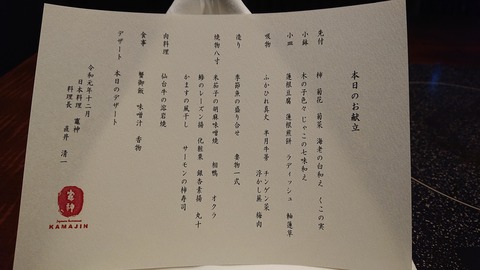 本日のお献立
先付 柿 菊花 菊菜 海老の白和え くこの実
小鉢 木の子色々 じゃこの七味和え
小皿 蓮根豆腐 蓮根煎餅 ラディッシュ 軸蓮草
吸物 ふかひれ真丈 半月牛蒡 チンゲン菜
浮かし麩 梅肉
造り 季節魚の盛り合せ 妻物一式
焼物八寸 米茄子の胡麻味噌焼 相鴨 オクラ
鰆のレーズン揚 化粧葉 銀杏素揚 丸十
かますの風干し サーモンの柿寿司
肉料理 仙台牛の溶岩焼
食事 蟹御飯 味噌汁 香物
デザート 本日のデザート
令和元年十二月
日本料理 竈神
料理長 直井 清一
竈神
Japanese Restaurant
KAMAJIN